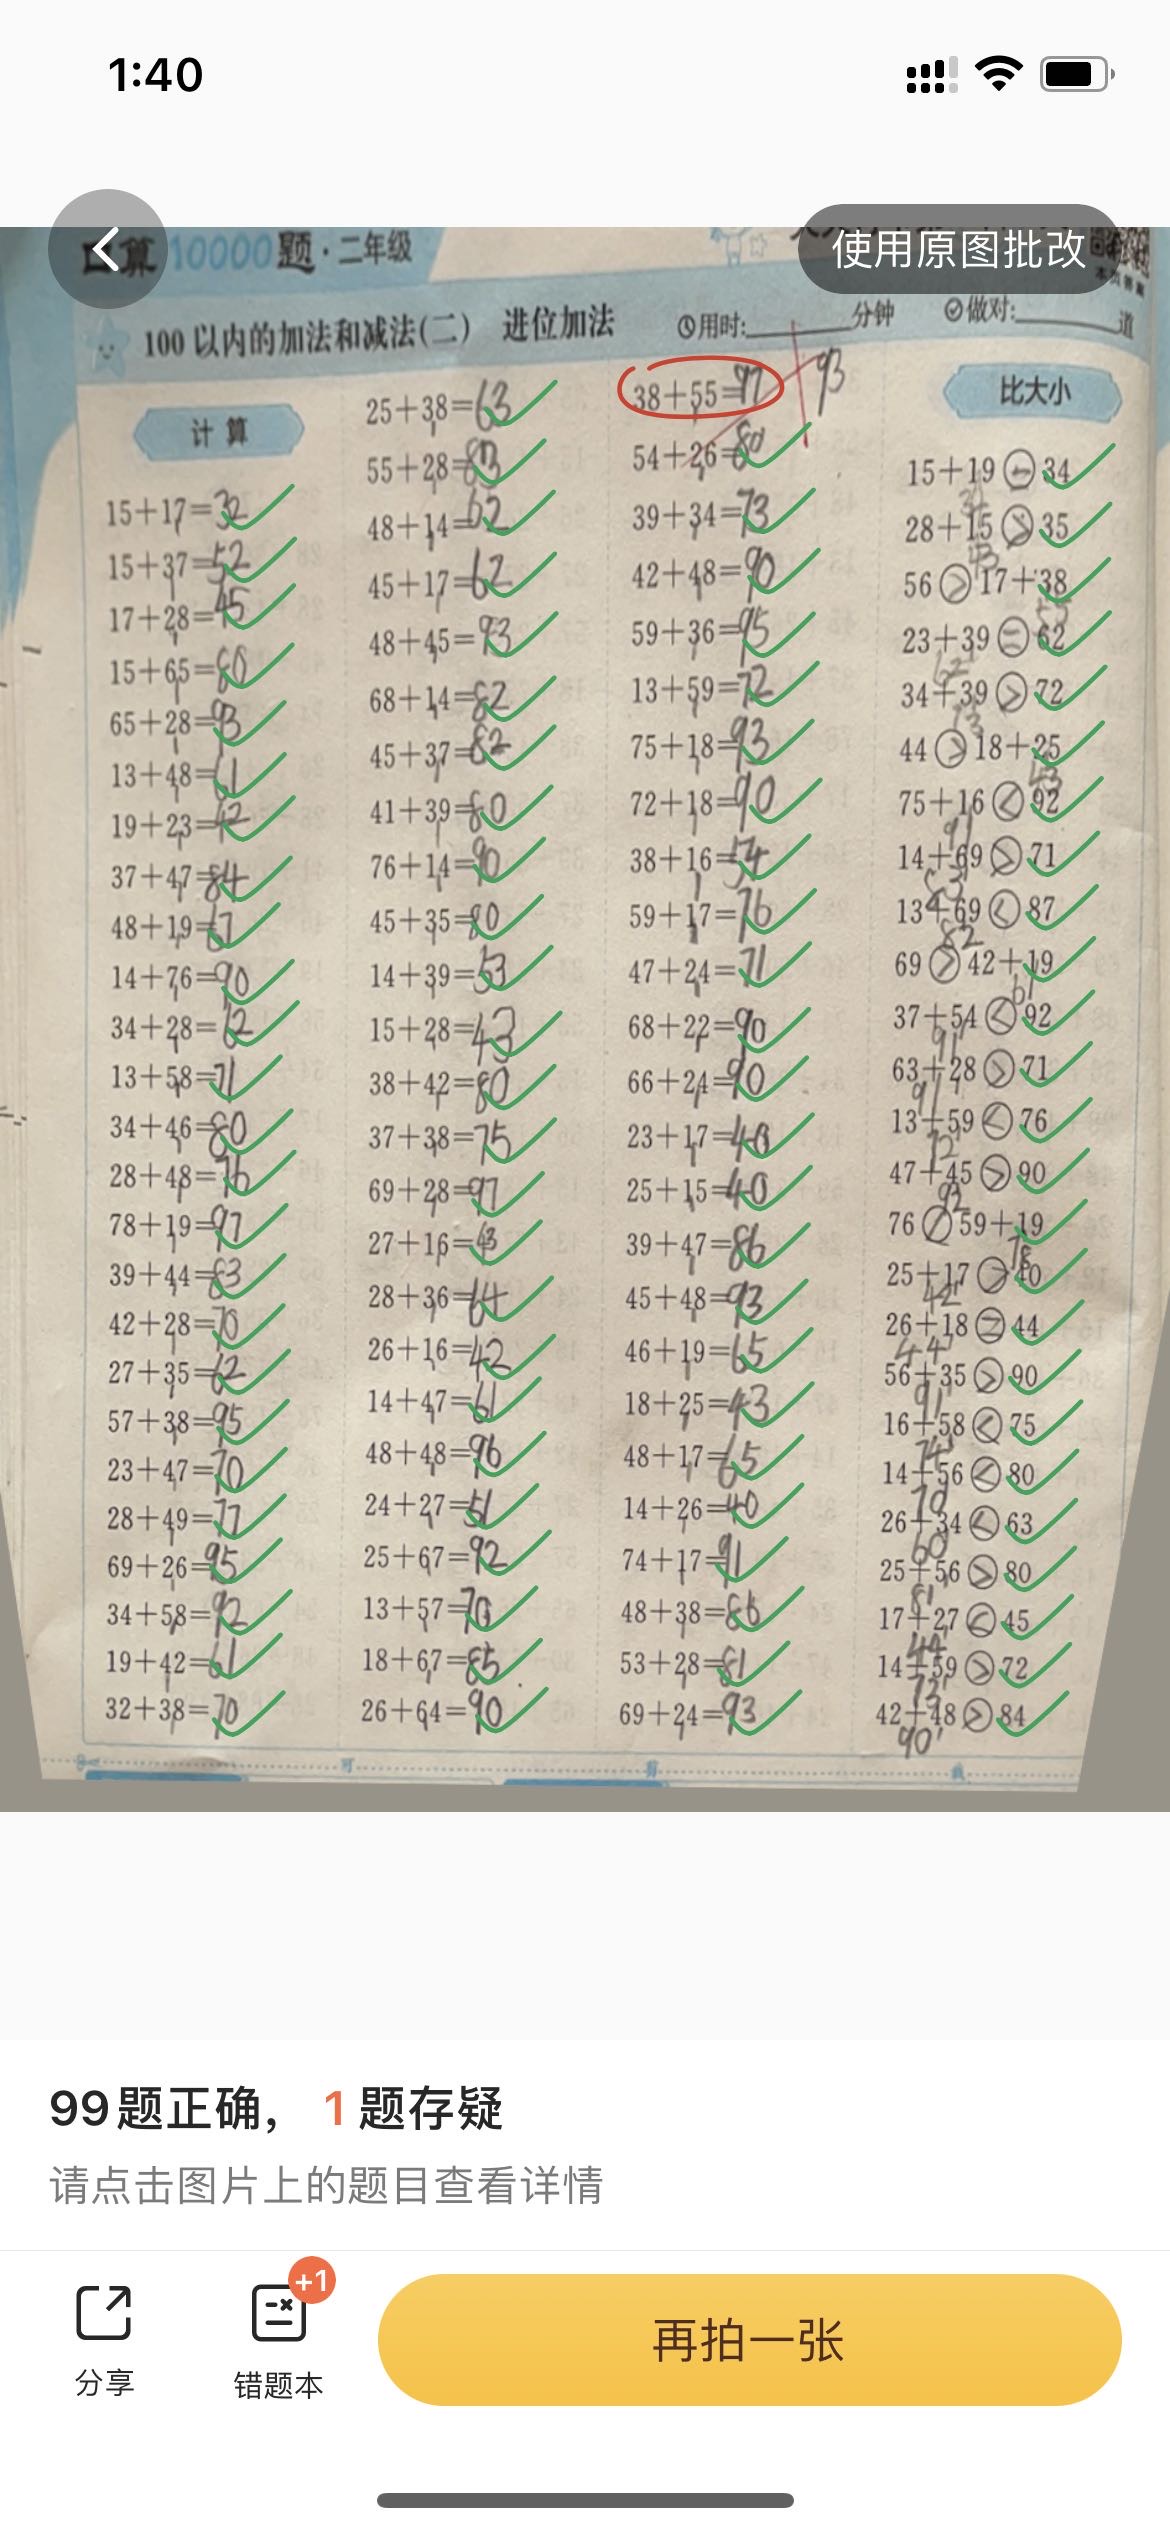 1:40
口算10000题·二年级
使用原图批改
100以内的加法和减法(二) 进位加法
用时: 分钟
做对: 道
计算
15+17=32
15+37=52
17+28=45
15+65=80
65+28=93
13+48=61
19+23=42
37+47=84
48+19=67
14+76=90
34+28=62
13+58=71
34+46=80
28+48=76
78+19=97
39+44=83
42+28=70
27+35=62
57+38=95
23+47=70
28+49=77
69+26=95
34+58=92
19+42=61
32+38=70
25+38=63
55+28=83
48+14=62
45+17=62
48+45=93
68+14=82
45+37=82
41+39=80
76+14=90
45+35=80
14+39=53
15+28=43
38+42=80
37+38=75
69+28=97
27+16=43
28+36=64
26+16=42
14+47=61
48+48=96
24+27=51
25+67=92
13+57=70
18+67=85
26+64=90
38+55=97 93
54+26=80
39+34=73
42+48=90
59+36=95
13+59=72
75+18=93
72+18=90
38+16=54
59+17=76
47+24=71
68+22=90
66+24=90
23+17=40
25+15=40
39+47=86
45+48=93
46+19=65
18+25=43
48+17=65
14+26=40
74+17=91
48+38=86
53+28=81
69+24=93
比大小
15+19=34
34
28+15>35
43
56>17+38
55
23+39=62
62
34+39>72
73
44>18+25
43
75+16<92
91
14+69>71
83
13+69<87
82
69>42+19
61
37+54<92
91
63+28>71
91
13+59<76
72
47+45>90
92
76 59+19
78
25+17>40
42
26+18=44
44
56+35>90
91
16+58<75
74
14+56<80
70
26+34<63
60
25+56>80
81
17+27<45
44
14+59>72
73
42+48>84
90
99题正确， 1题存疑
请点击图片上的题目查看详情
+1
分享
错题本
再拍一张